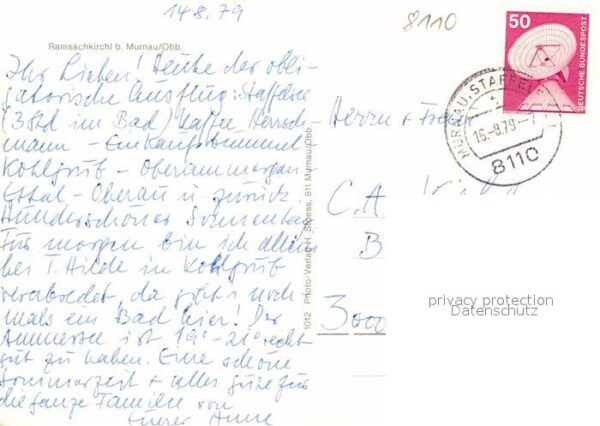 14.8.79
8110
Ramsachkirchl b. Murnau/Obb.
50
DEUTSCHE BUNDESPOST
MURNAU, STAFFEL
16.-8.79.-7
8110
Ihr Lieben! Heute der obli-
gatorische Ausflug: Staffelsee
(3 Std im Bad) Kaffee
mann - Einkaufsbummel
Kohlgrub - Oberammergau
Ettal - Oberau u. zurück.
Wunderschöner Sonnentag
Für morgen bin ich allein
bei T. Hilde in Kohlgrub
verabredet, da gibt's noch
mals ein Bad hier! Der
Ammersee ist 19°-21° recht
gut zu haben. Eine schöne
Sommerzeit + alles gute für
die ganze Familie von
Eurer Anne
1012 Photo-Verlag H. Stoess, 811 Murnau/Obb.
Herrn + Frau
C.A
B
3000
privacy protection
Datenschutz